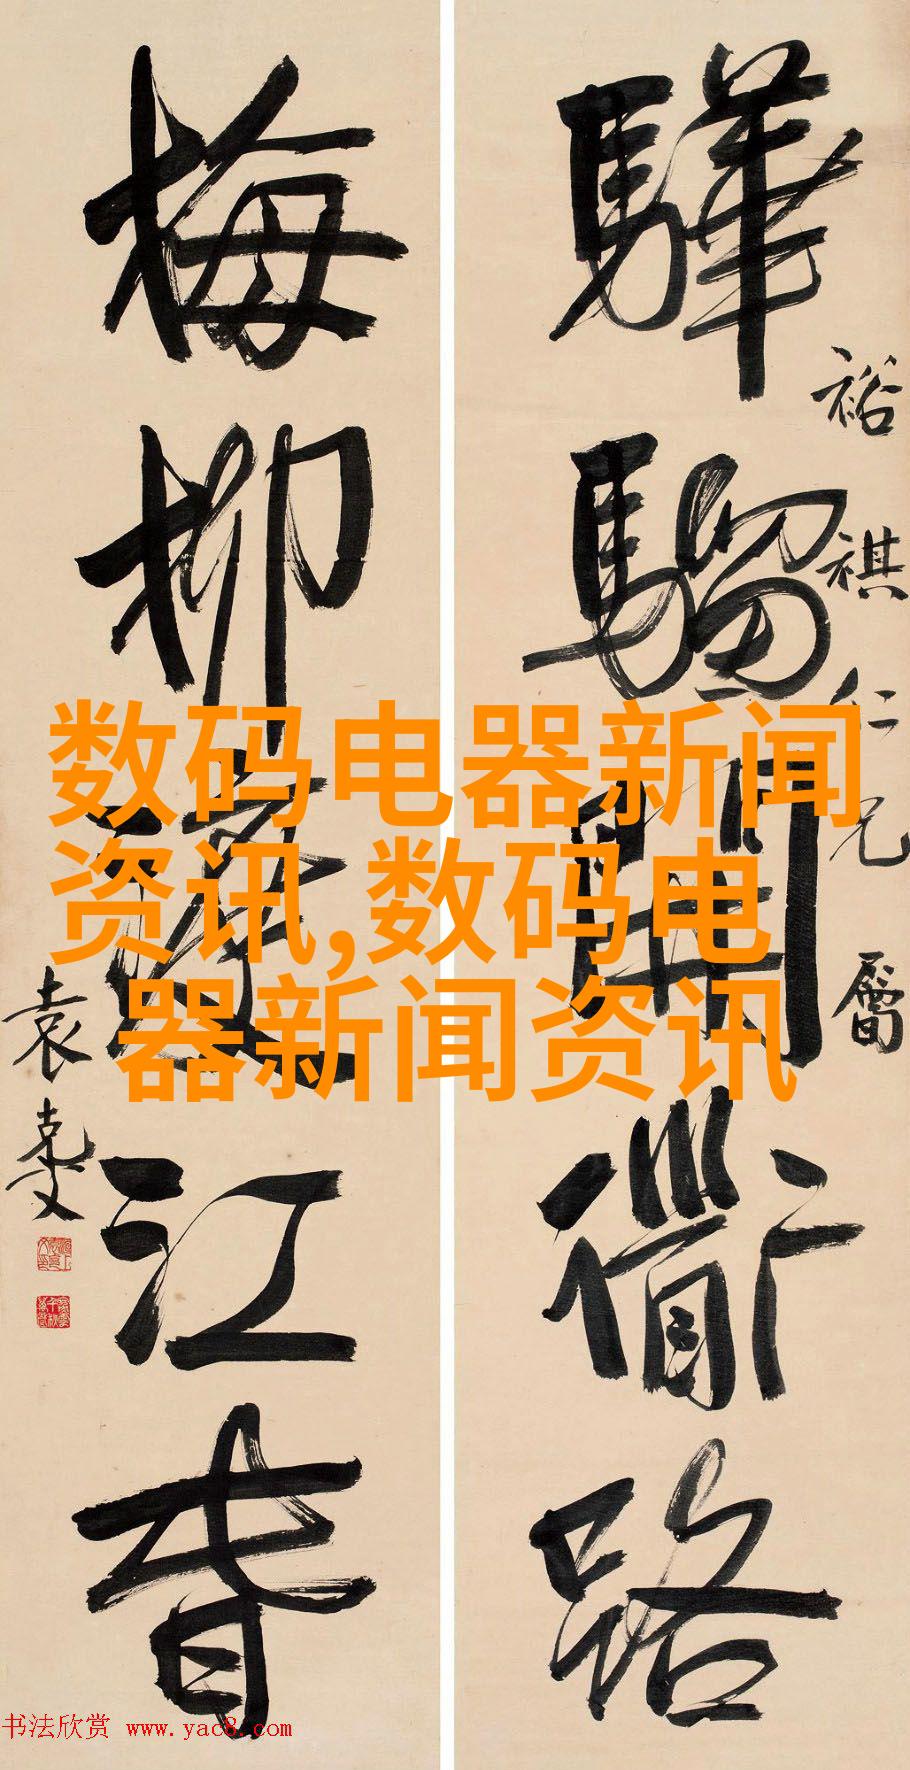 驊騮開衜路
裕祺仁兄屬
梅柳渡江春
袁克文
数码电器新闻
资讯,数码电
器新闻资讯
书法欣赏 www.yac8.com